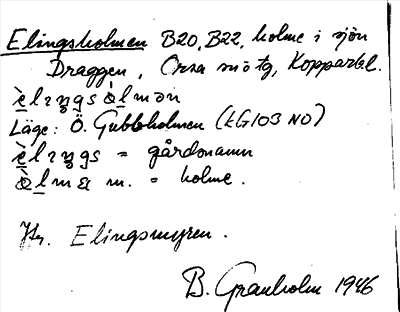 Elingsholmen B20, B22, holme i sjön
Draggen, Orsa sn ö tg, Kopparbl.
è̠lıŋgsò̠lmən
Läge: Ö. Gubbholmen (EG103 NO)
è̠lıŋgs = gårdsnamn
ò̠lm m. = holme.
Jfr. Elingsmyren.
B. Granholm 1946